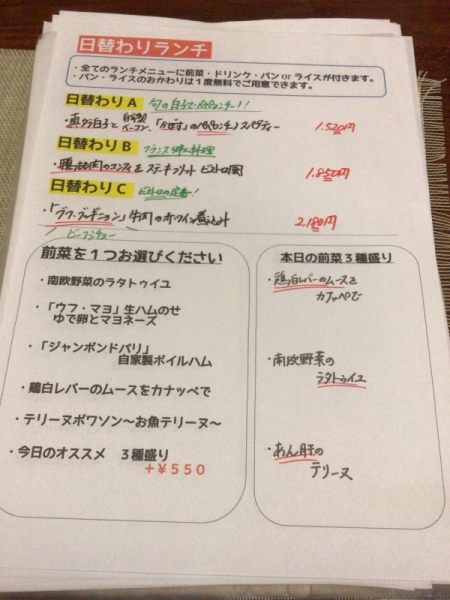 日替わりランチ
・全てのランチメニューに前菜・ドリンク・パン or ライスが付きます。
・パン・ライスのおかわりは１度無料でご用意できます。
日替わりA 旬の白子でペペロンチーノ!!
・真タラ白子と自家製ベーコン、「かぶす」のペペロンチーノスパゲティー 1.520円
日替わりB フランス郷土料理
・鴨もも肉のコンフィをステークフリット ビストロ風 1.850円
日替わりC ビストロの定番！
・「ブフ・ブルギニョン」牛肉の赤ワイン煮込み 2.180円
ビーフシチュー
前菜を１つお選びください
・南欧野菜のラタトゥイユ
・「ウフ・マヨ」生ハムのせ
ゆで卵とマヨネーズ
・「ジャンボンドパリ」
自家製ボイルハム
・鶏白レバーのムースをカナッペで
・テリーヌポワソン〜お魚テリーヌ〜
・今日のオススメ　３種盛り
＋￥５５０
本日の前菜３種盛り
・鶏白レバーのムースを
カナッペで
・南欧野菜の
ラタトゥイユ
・あん肝の
テリーヌ